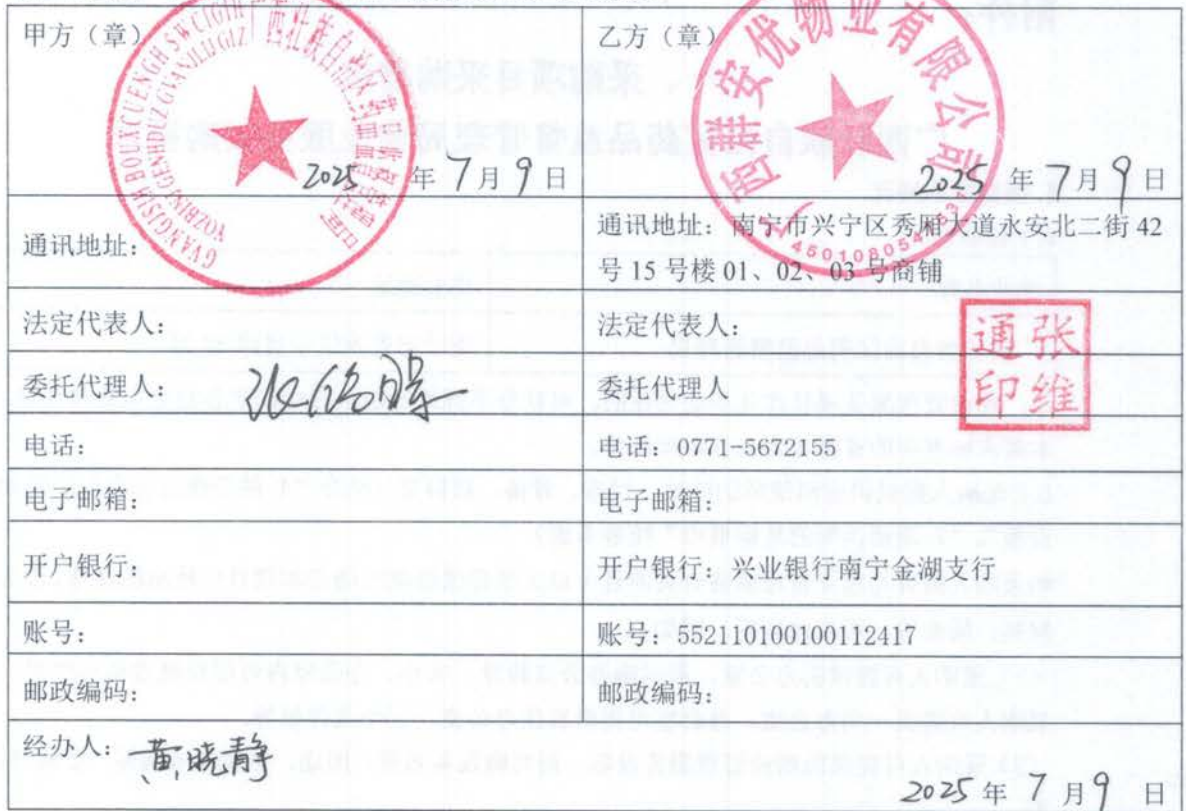 甲方（章）
2025 年 7 月 9 日
乙方（章）
2025 年 7 月 9 日
通讯地址：
通讯地址：南宁市兴宁区秀厢大道永安北二街 42
号 15 号楼 01、02、03 号商铺
法定代表人：
法定代表人：
委托代理人：
委托代理人
张维
通印
电话：
电话：0771-5672155
电子邮箱：
电子邮箱：
开户银行：
开户银行：兴业银行南宁金湖支行
账号：
账号：552110100100112417
邮政编码：
邮政编码：
经办人：黄晓静
2025 年 7 月 9 日
安优物业有限公司